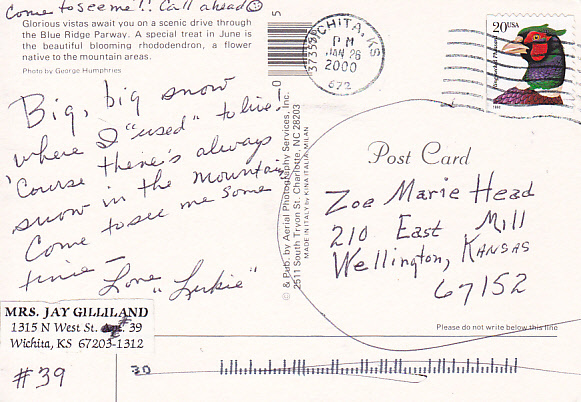 come to see me!! Call ahead☺
Glorious vistas await you on a scenic drive through
the Blue Ridge Parway. A special treat in June is
the beautiful blooming rhododendron, a flower
native to the mountain areas.
Photo by George Humphries
Big, big snow
where I "used" to live!
'Course there's always
snow in the mountain
Come to see me some
time—
Love "Lukie"
MRS. JAY GILLILAND
1315 N West St. Apt. 39
Wichita, KS 67203-1312
#39
5
37355
0
WICHITA, KS
PM
JAN 26
2000
672
20 USA
Ring-necked Pheasant
1998
© & Pub. by Aerial Photography Services, Inc.
2511 South Tryon St. Charlotte, NC 28203
MADE IN ITALY by KINA ITALIA-MILAN
Post Card
Zoe Marie Head
210 East Mill
Wellington, KANSAS
67152
Please do not write below this line
30